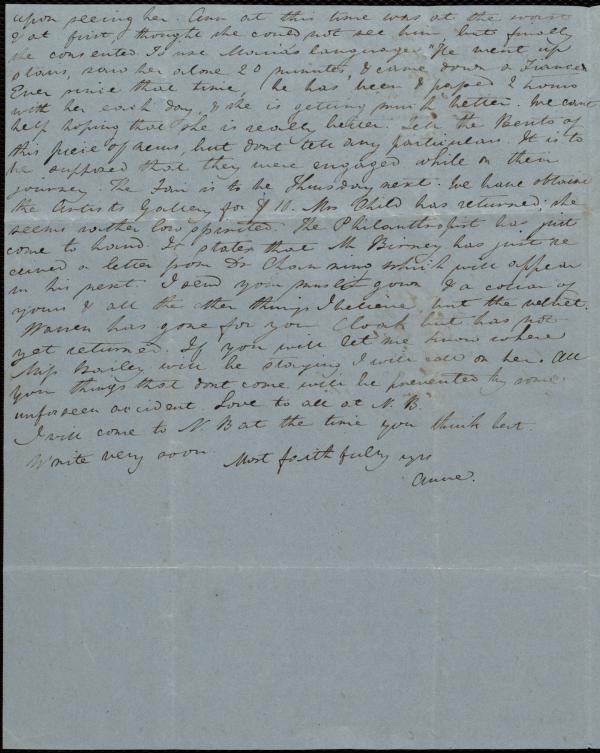 upon seeing her. Ann at this time was at the worst
& at first thought she could not see him, but finally
she consented. To use Maria's language "He went up
stairs, saw her alone 20 minutes, & came down a Fiancé
Ever since that time, he has been & passed 2 hours
with her each day, & she is getting much better. We cant
help hoping that she is really better. Tell the Bents of
this piece of news, but dont tell any particulars. It is to
be supposed that they were engaged while on their
journey. The Fair is to be Thursday next. We have obtained
the Artists Gallery for $10. Mrs Child has returned, she
seems rather low spirited. The Philanthropist has just
come to hand. It states that Mr Birney has just re
ceived a letter from Dr Channing which will appear
in his next. I send your muslin gown & a collar of
yours & all the other things I believe but the velvet.
Warren has gone for your Cloak but has not
yet returned. If you will let me know where
Miss Bailey will be staying I will call on her. All
your things that dont come will be prevented by some
unforseen accident. Love to all at N. B.
I will come to N. B at the time you think best.
Write very soon.
Most faithfully yrs
Anne.